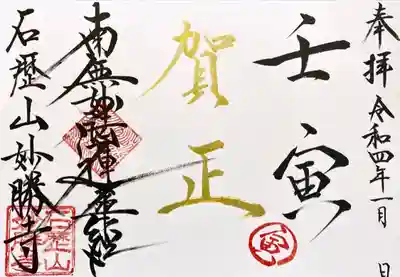 奉拝 令和四年一月 日
壬寅
賀正
南無妙法蓮華経
石歴山妙勝寺
石歴山